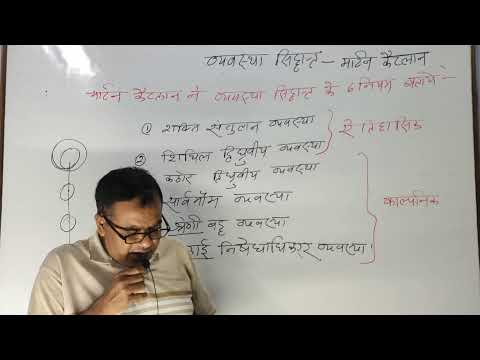 व्यवस्था सिद्धान्त – मार्टन कैटलान
मार्टन कैटलान ने व्यवस्था सिद्धान्त के 6 नियम बताये :-
① शक्ति संतुलन व्यवस्था
② शिथिल द्विध्रुवीय व्यवस्था
ऐतिहासिक
कठोर द्विध्रुवीय व्यवस्था
सार्वभौम व्यवस्था
काल्पनिक
श्रेणी बद्ध व्यवस्था
काई निषेधाधिकार व्यवस्था